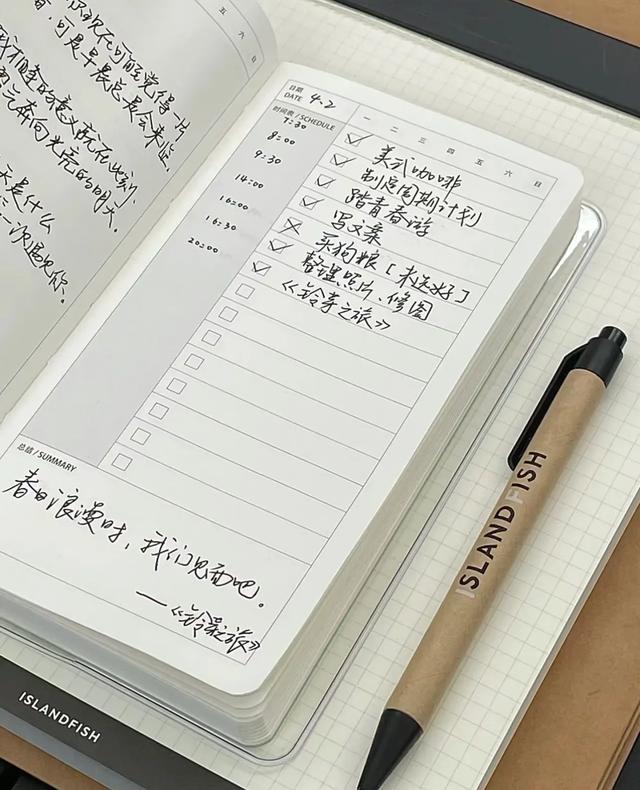 五 六
现在可能觉得一片
可是早晨总是会来临
的意义就在此刻,
奔向光亮的明天。
天是什么
一次遇见你。
日期 / DATE 4.2
一 二 三 四 五 六 日
时间表 / SCHEDULE
7:30 美式咖啡
8:00 制定周期计划
9:30 踏青春游
14:00 写文案
16:00 买狗粮 [未选好]
16:30 整理照片、修图
20:00 《铃芽之旅》
总结 / SUMMARY
春日浪漫时,我们见面吧。
——《铃芽之旅》
ISLANDFISH
ISLANDFISH